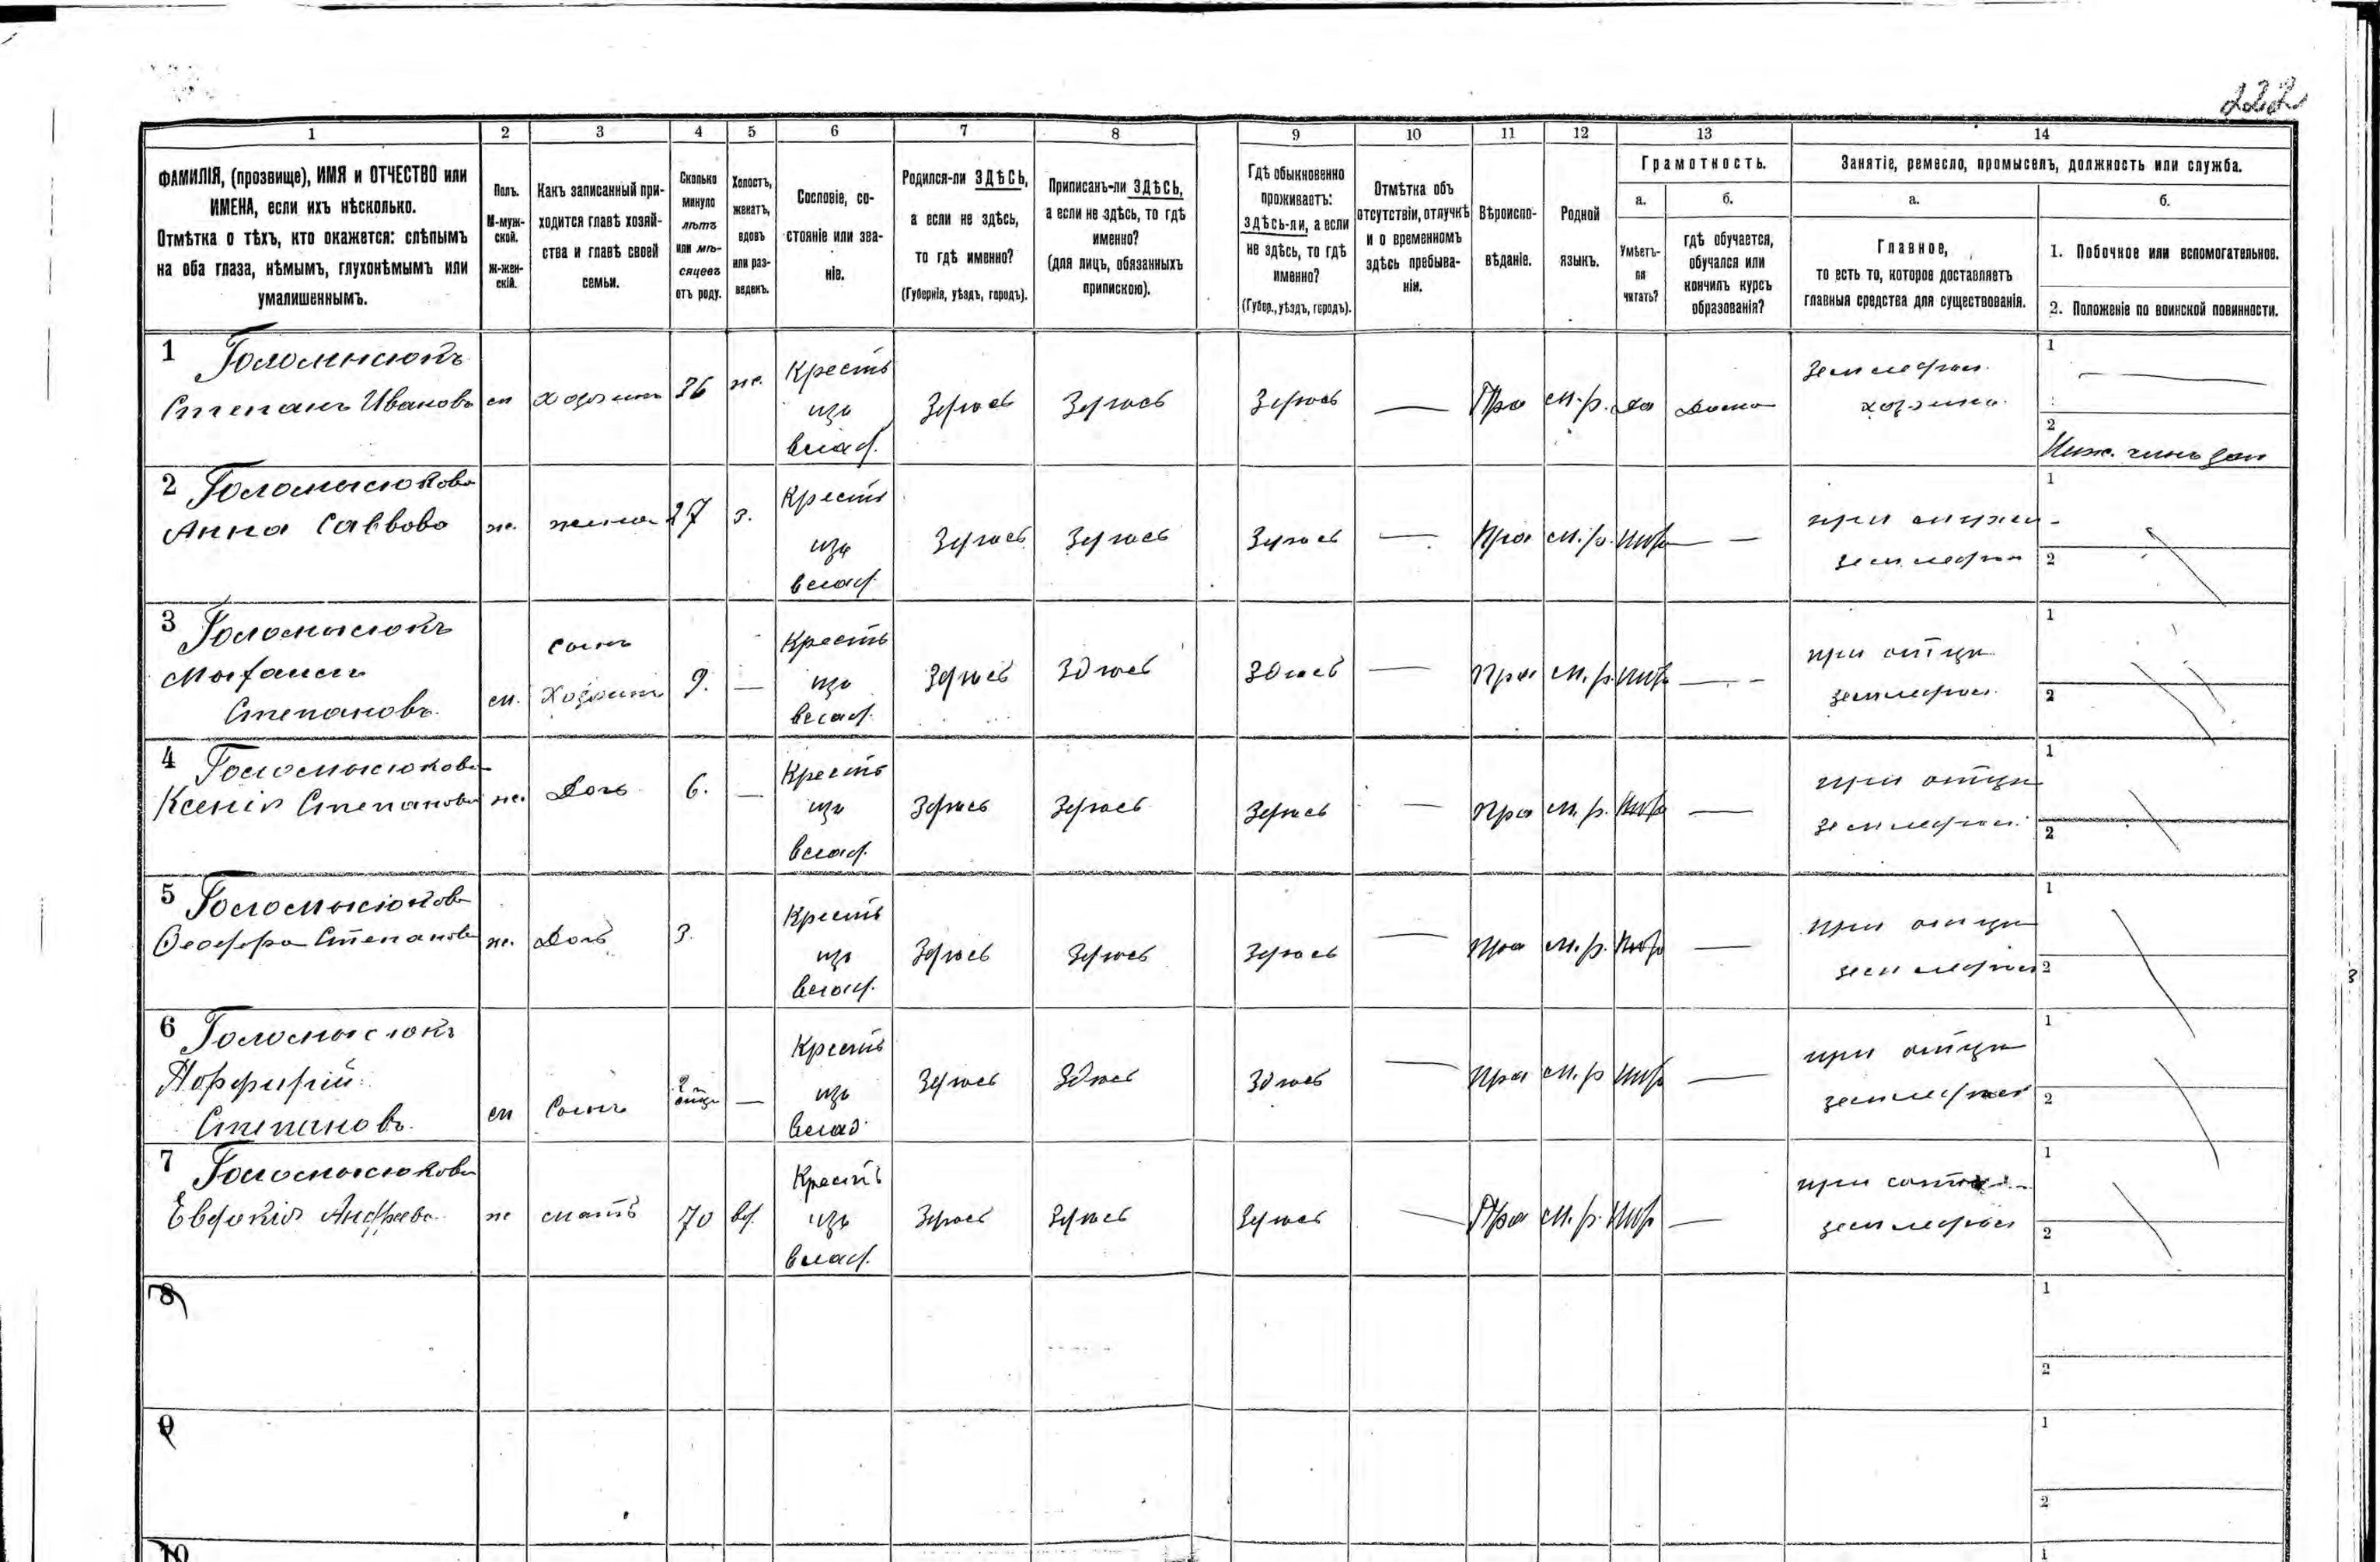 222
1 2 3 4 5 6 7 8 9 10 11 12 13 14
ФАМИЛІЯ, (прозвище), ИМЯ и ОТЧЕСТВО или
ИМЕНА, если ихъ нѣсколько.
Отмѣтка о тѣхъ, кто окажется: слѣпымъ
на оба глаза, нѣмымъ, глухонѣмымъ или
умалишеннымъ.
Полъ.
М-муж-
ской.
Ж-жен-
скій.
Какъ записанный при-
ходится главѣ хозяй-
ства и главѣ своей
семьи.
Сколько
минуло
лѣтъ
или мѣ-
сяцевъ
отъ роду.
Холостъ,
женатъ,
вдовъ
или раз-
веденъ.
Сословіе, со-
стояніе или зва-
ніе.
Родился-ли ЗДѢСЬ,
а если не здѣсь,
то гдѣ именно?
(Губернія, уѣздъ, городъ).
Приписанъ-ли ЗДѢСЬ,
а если не здѣсь, то гдѣ
именно?
(для лицъ, обязанныхъ
припискою).
Гдѣ обыкновенно
проживаетъ:
ЗДѢСЬ-ли, а если
не здѣсь, то гдѣ
именно?
(Губер., уѣздъ, городъ).
Отмѣтка объ
отсутствіи, отлучкѣ
и о временномъ
здѣсь пребыва-
ніи.
Вѣроиспо-
вѣданіе.
Родной
языкъ.
Грамотность.
а.
Умѣетъ-
ли
читать?
б.
гдѣ обучается,
обучался или
кончилъ курсъ
образованія?
Занятіе, ремесло, промыселъ, должность или служба.
а.
Главное,
то есть то, которое доставляетъ
главныя средства для существованія.
б.
1. Побочное или вспомогательное.
2. Положеніе по воинской повинности.
1
Степанъ Ивановъ
м
хозяинъ
36
же.
Крестъ
изъ
влад.
Здѣсь
Здѣсь
Здѣсь
—
Пра
м.р.
да
дома
земледѣл.
хозяинъ
1 —
2
Ниж. чинъ зап
2 Голомысюкова
Анна Саввова
же.
жена
27
з.
Крестъ
изъ
влад.
Здѣсь
Здѣсь
Здѣсь
—
Пра
м.р.
нѣтъ
—
при мужѣ
земледѣл
1
2
3 Голомысюкъ
Степановъ
м.
сынъ
хозяин
9.
—
Крестъ
изъ
влад.
Здѣсь
Здѣсь
Здѣсь
—
Пра
м.р.
нѣтъ
—
при отцѣ
земледѣл.
1
2
4 Голомысюкова
Ксенія Степанова
же.
Дочь
6.
—
Крестъ
изъ
влад.
Здѣсь
Здѣсь
Здѣсь
—
Пра
м.р.
нѣтъ
—
при отцѣ
земледѣл.
1
2
5 Голомысюкова
Ѳеодора Степанова
же.
Дочь
3.
Крестъ
изъ
влад.
Здѣсь
Здѣсь
Здѣсь
—
Пра
м.р.
нѣтъ
—
при отцѣ
земледѣл
1
2
6 Голомысюкъ
Порфирій
Степановъ
м
Сынъ
—
Крестъ
изъ
влад.
Здѣсь
Здѣсь
Здѣсь
—
Пра
м.р
нѣтъ
—
при отцѣ
земледѣл
1
2
7 Голомысюкова
Евдокія Андреева
же
мать
70
вд.
Крестъ
изъ
влад.
Здѣсь
Здѣсь
Здѣсь
—
Пра
м.р.
нѣтъ
—
при
земледѣл
1
2
8
1
2
9
1
2
10
1